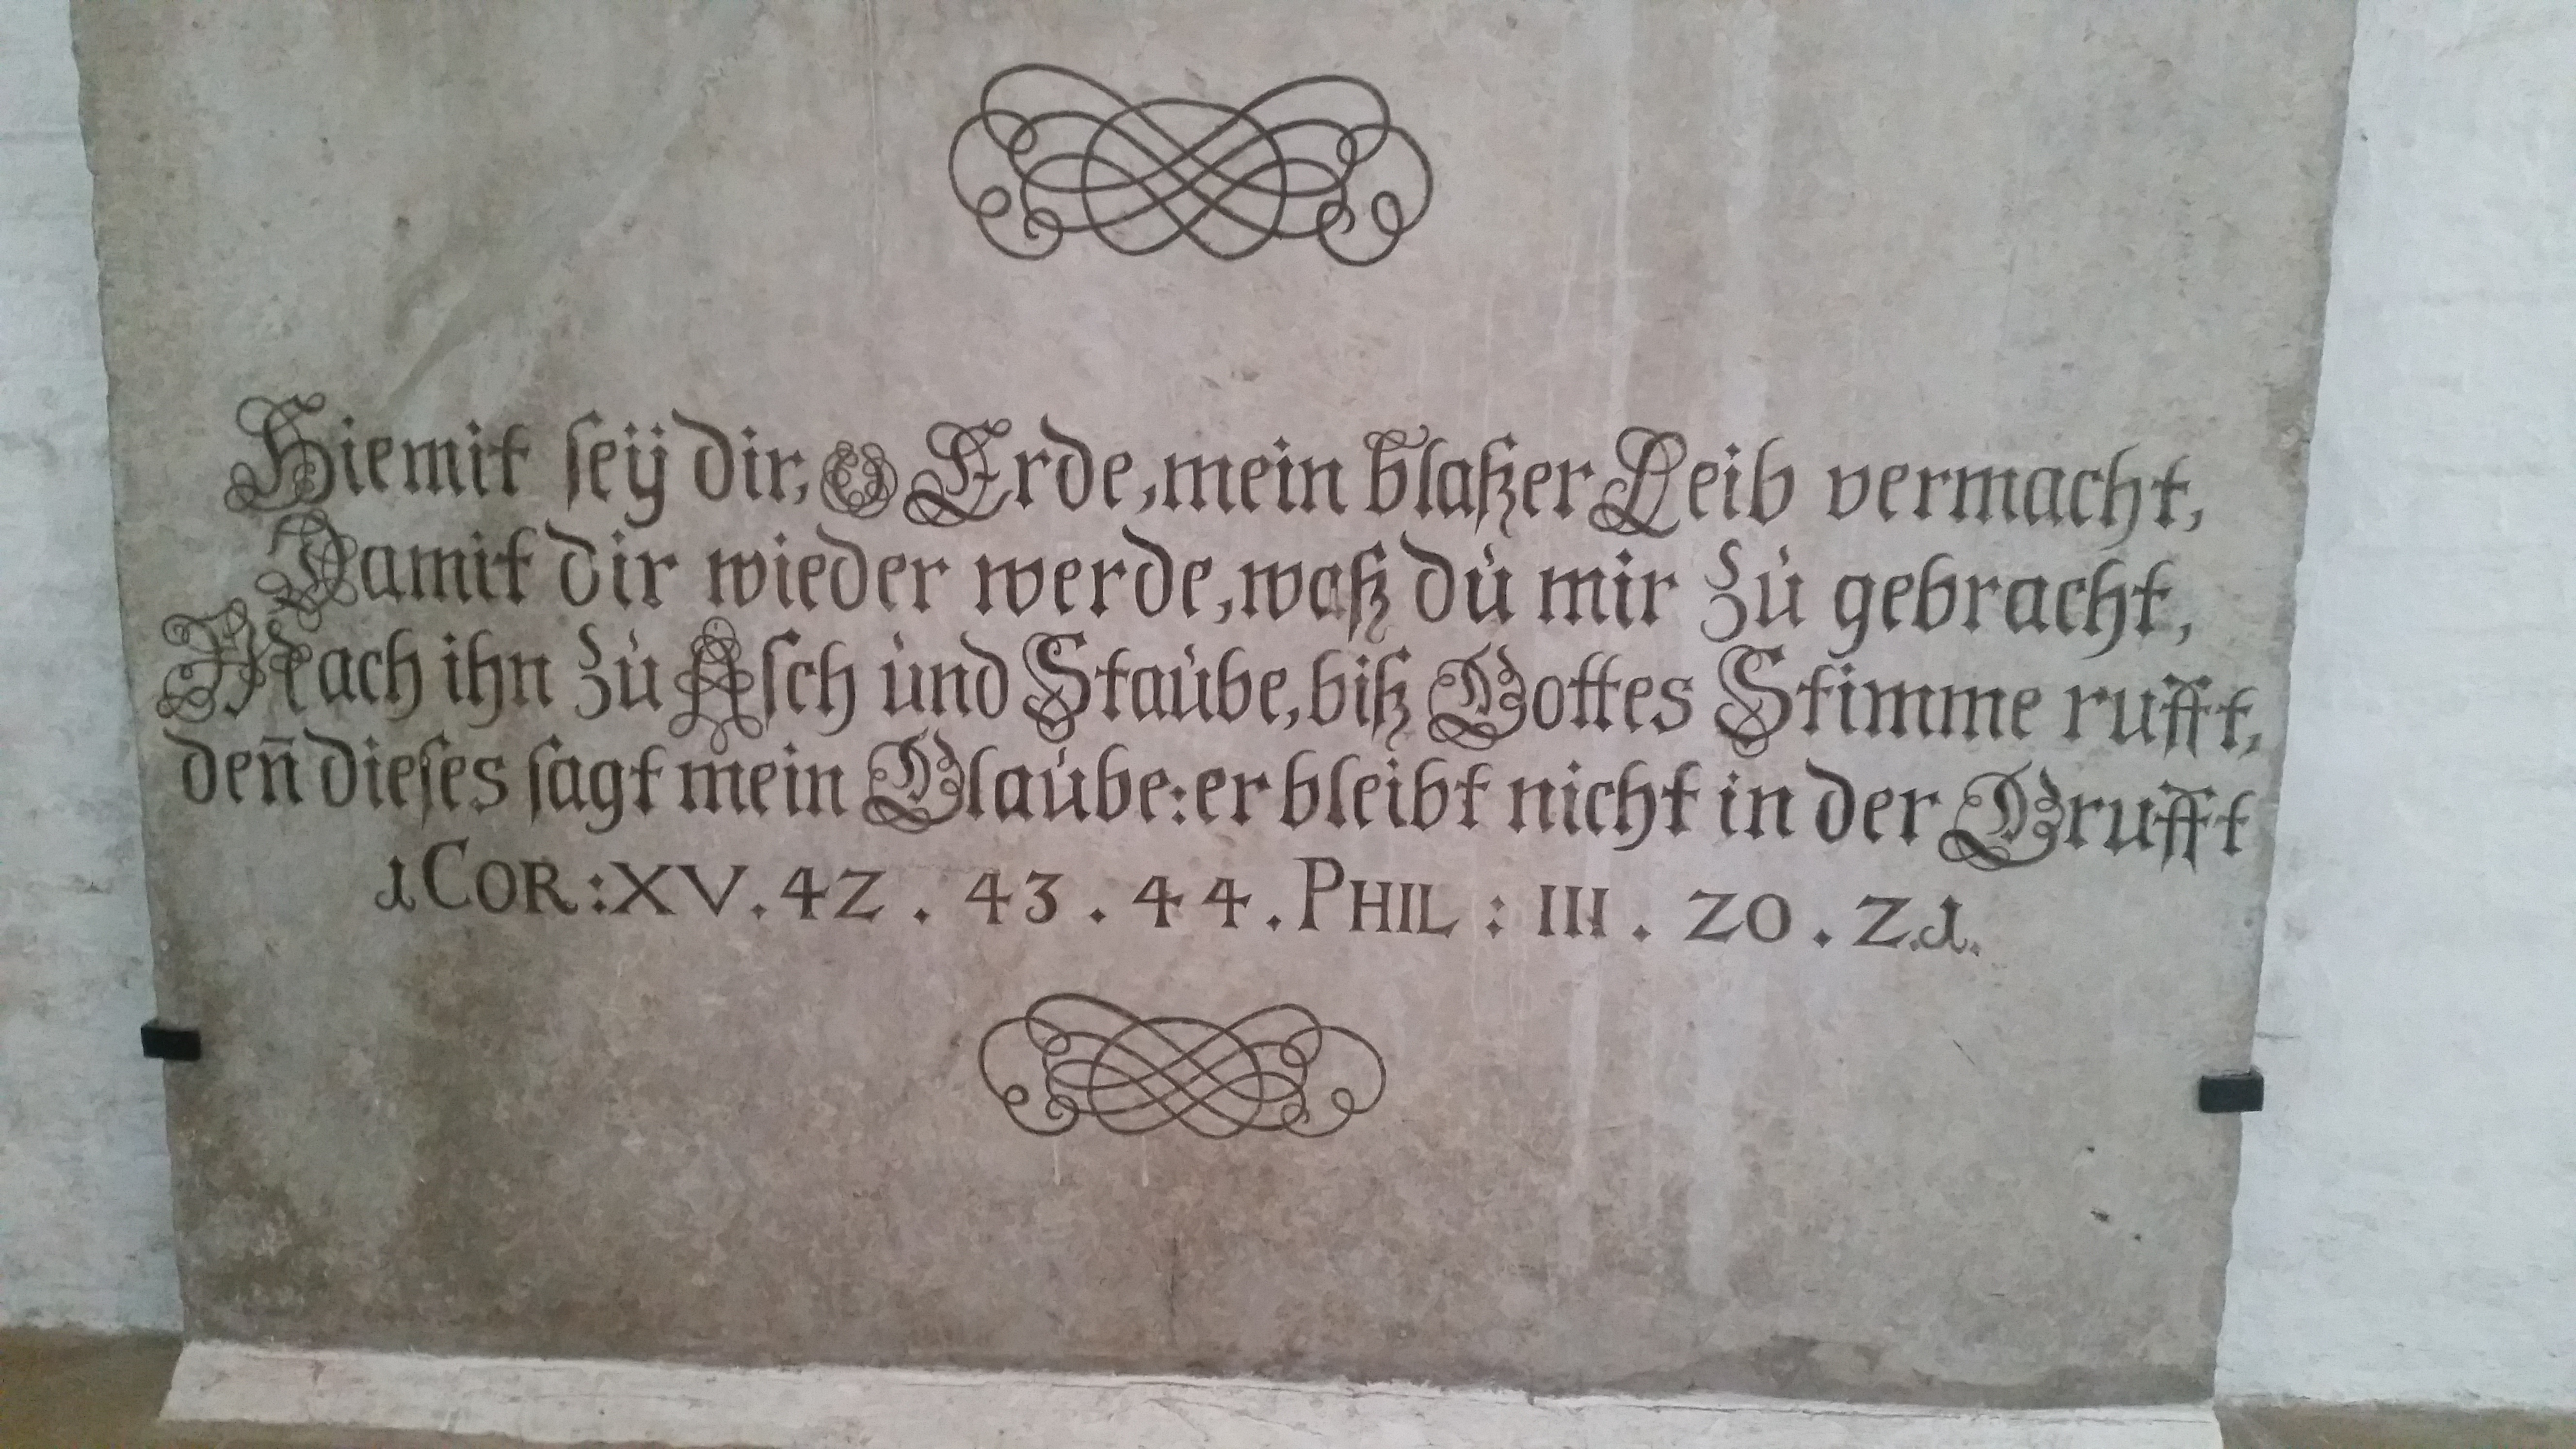 Hiemit seÿ dir, O Erde, mein blaßer Leib vermacht,
Damit dir wieder werde, waß du mir zu gebracht,
Mach ihn zu Asch und Staube, biß Gottes Stimme rufft,
den̄ dieses sagt mein Glaube: er bleibt nicht in der Grufft
1 COR: XV. 42. 43. 44. PHIL: III. 20. 21.